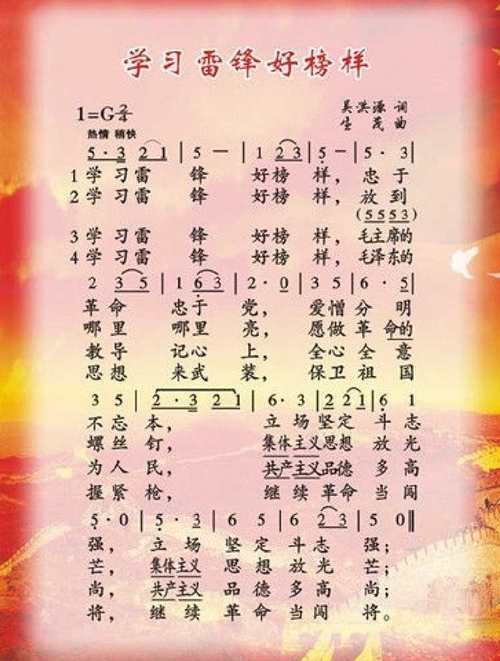 学习雷锋好榜样
1=G 2/4 吴洪源 词
热情 稍快 生 茂 曲
5·3 2 1 | 5 — | 1 2 3 | 5 — | 5 · 3 |
1 学 习 雷 锋 好 榜 样， 忠 于
2 学 习 雷 锋 好 榜 样， 放 到
(5 5 5 3)
3 学 习 雷 锋 好 榜 样， 毛主席的
4 学 习 雷 锋 好 榜 样， 毛泽东的
2 3 5 | 1 6 3 | 2 · 0 | 3 5 | 6 · 5 |
革 命 忠 于 党， 爱 憎 分 明
哪 里 哪 里 亮， 愿 做 革 命的
教 导 记 心 上， 全 心 全 意
思 想 来 武 装， 保 卫 祖 国
3 5 | 2 · 3 2 1 | 6 · 3 | 2 2 1 | 6 1
不 忘 本， 立 场 坚 定 斗 志
螺 丝 钉， 集体主义思想 放 光
为 人 民， 共产主义品德 多 高
握 紧 枪， 继 续 革 命 当 闯
5 · 0 | 5 · 3 | 6 5 | 6 2 3 | 5 0 ‖
强， 立 场 坚 定 斗 志 强；
芒， 集体主义 思 想 放 光 芒；
尚， 共产主义 品 德 多 高 尚；
将， 继 续 革 命 当 闯 将。